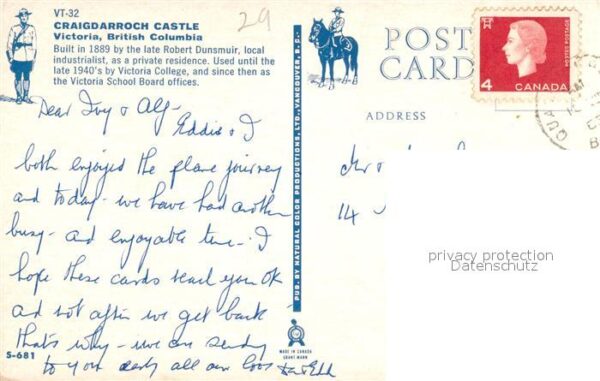 VT-32
CRAIGDARROCH CASTLE
Victoria, British Columbia
Built in 1889 by the late Robert Dunsmuir, local
industrialist, as a private residence. Used until the
late 1940's by Victoria College, and since then as
the Victoria School Board offices.
29
Dear Ivy & Alf-
Eddie & I
both enjoyed the plane journey
and today- we have had another
busy- and enjoyable time- I
hope these cards reach you OK
and not after we get back
that's why- we are sending
to you early all our love
S-681
PUB. BY NATURAL COLOR PRODUCTIONS, LTD., VANCOUVER, B. C.
MADE IN CANADA
GRANT-MANN
POST
CARD
ADDRESS
4
CANADA
POSTES POSTAGE
Mr &
14
privacy protection
Datenschutz